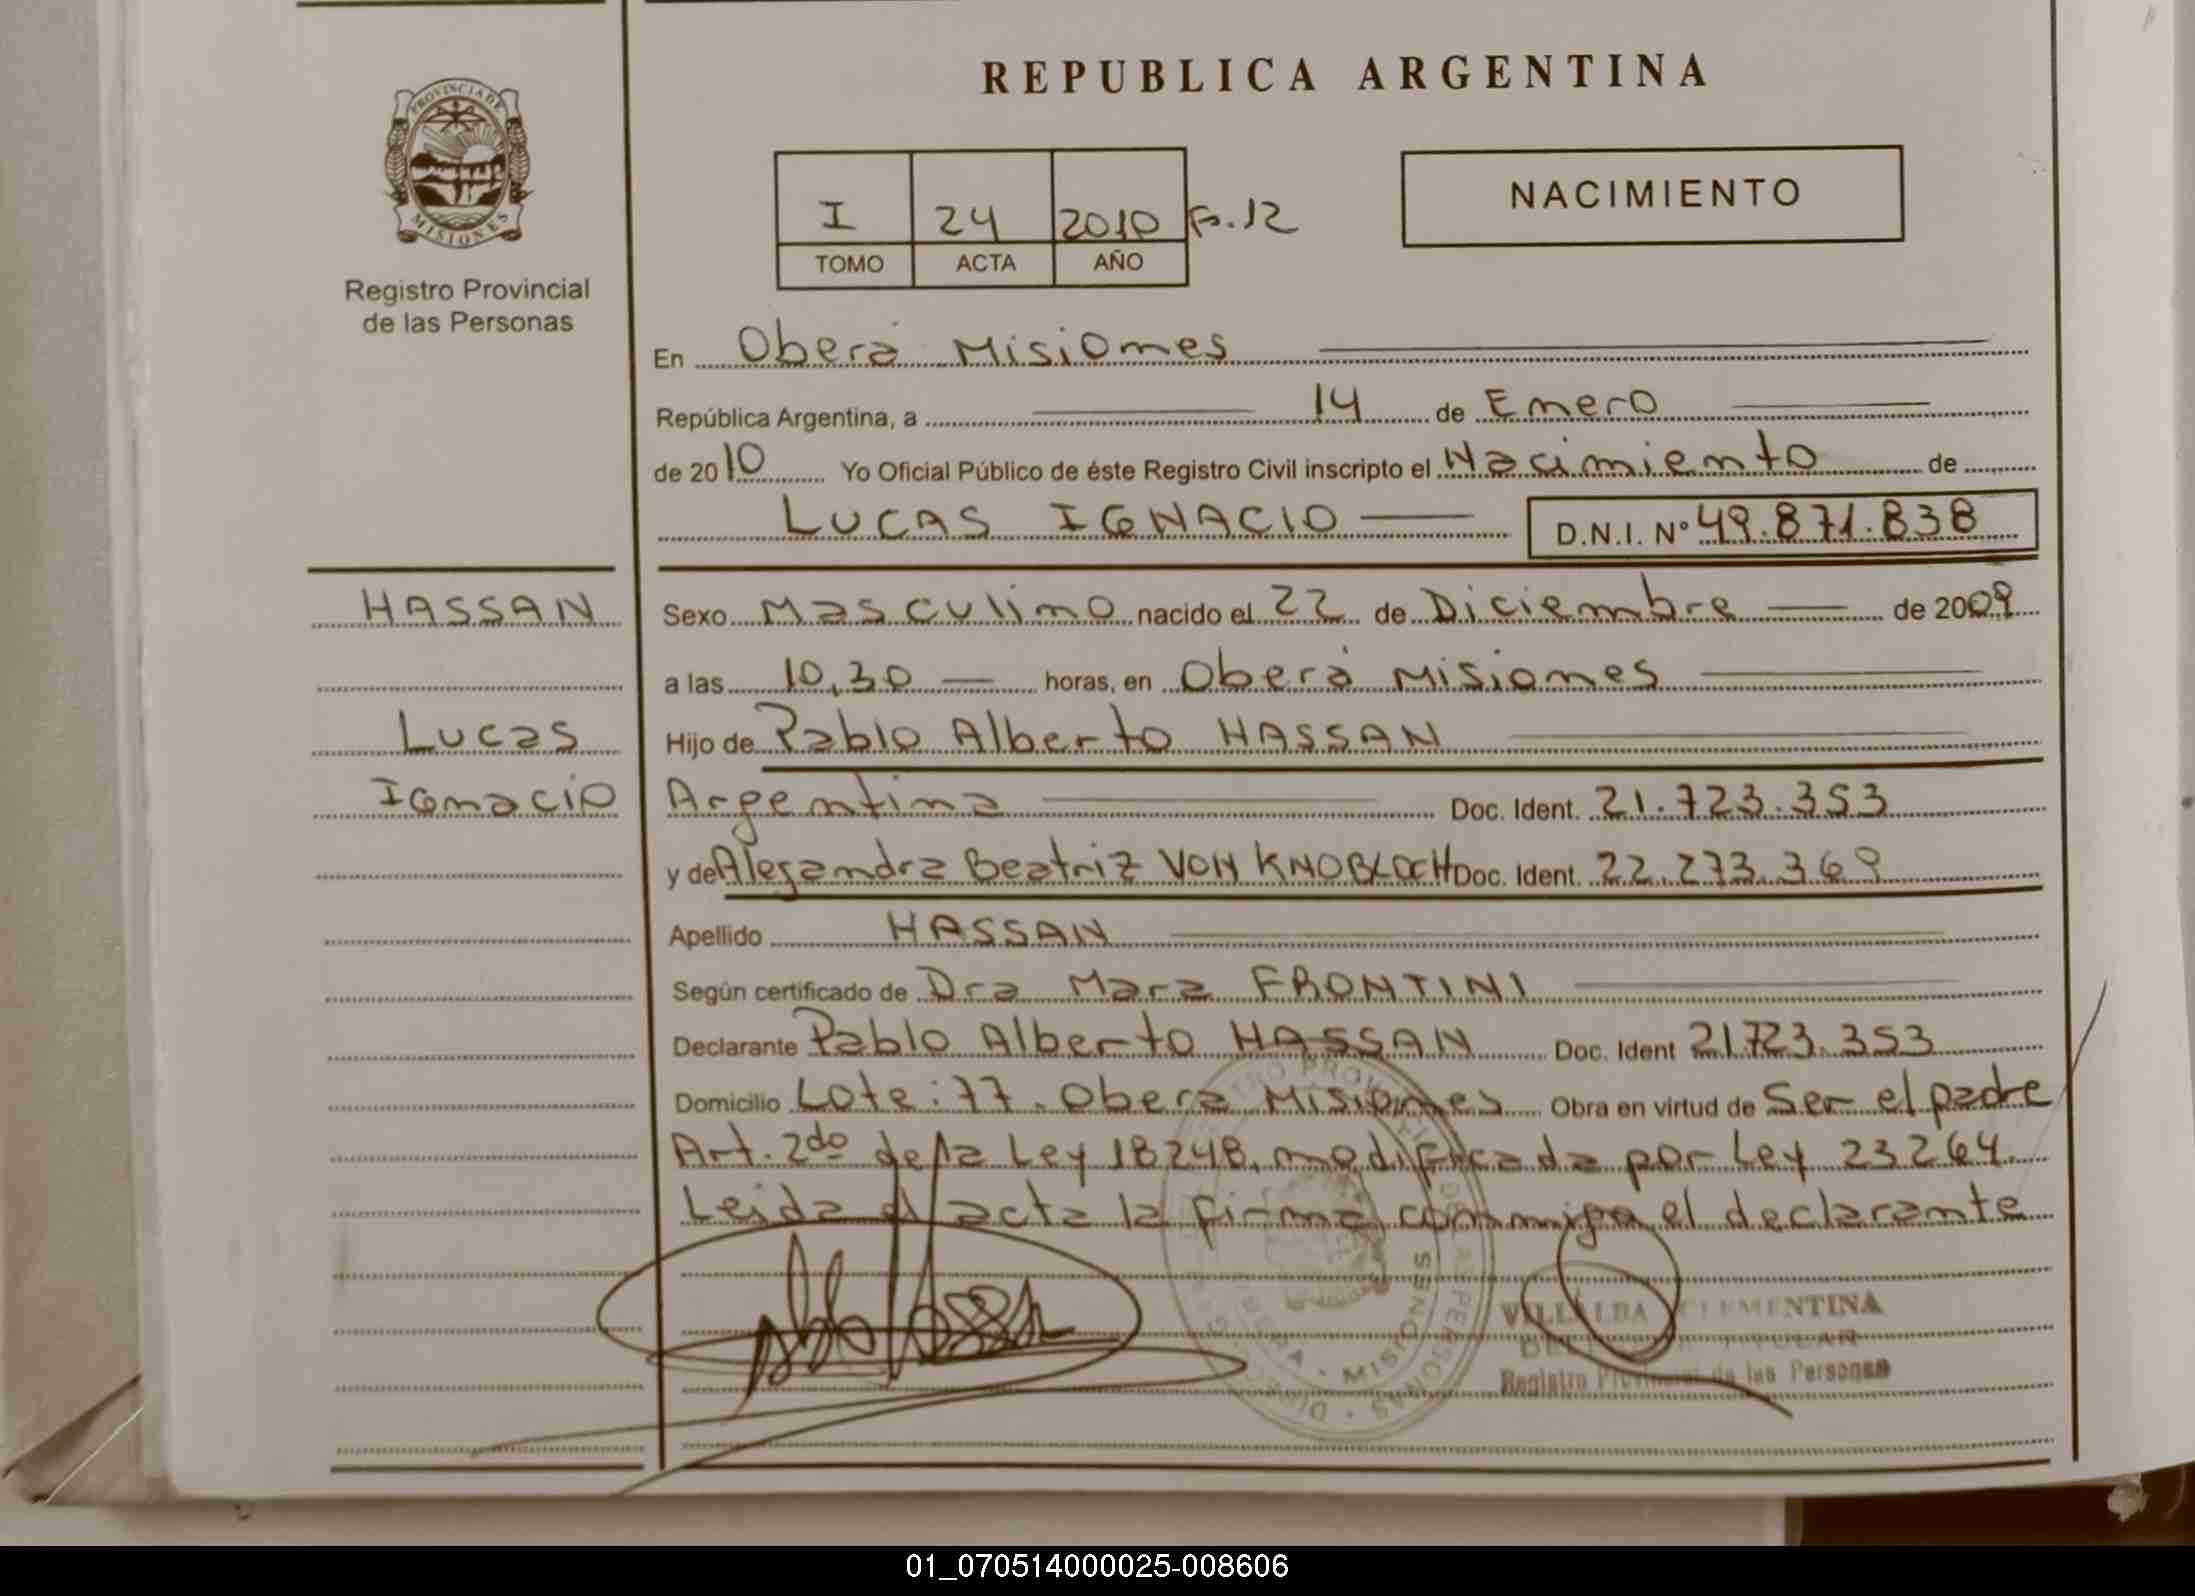 REPUBLICA ARGENTINA
PROVINCIA DE
MISIONES
Registro Provincial
de las Personas
I 24 2010 F.12
TOMO ACTA AÑO
NACIMIENTO
En Oberá Misiones
República Argentina, a 14 de Enero
de 2010 Yo Oficial Público de éste Registro Civil inscripto el Nacimiento de
LUCAS IGNACIO D.N.I. Nº 49.871.838
HASSAN
Lucas
Ignacio
Sexo Masculino nacido el 22 de Diciembre de 2009
a las 10,30 horas, en Oberá Misiones
Hijo de Pablo Alberto HASSAN
Argentina Doc. Ident. 21.723.353
y de Alejandra Beatriz VON KNOBLOCH Doc. Ident. 22.273.369
Apellido HASSAN
Según certificado de Dra Mara FRONTINI
Declarante Pablo Alberto HASSAN Doc. Ident 21723.353
Domicilio Lote: 77. Obera Misiones Obra en virtud de Ser el padre
Art. 2do de la Ley 18248, modificada por Ley 23264.
Leida el acta la firma conmigo el declarante
VILLALBA CLEMENTINA
Registro Provincial de las Personas
MISIONES
01_070514000025-008606